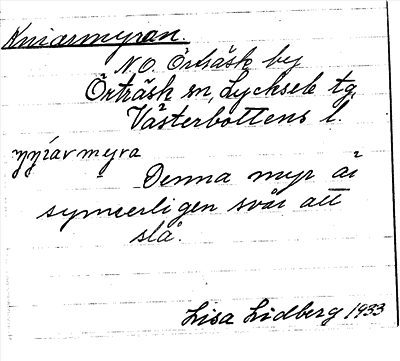 Kniarmyran.
N.O. Örträsk by
Örträsk sn, Lycksele tg.
Västerbottens l.
Denna myr är
synnerligen svår att
slå.
Lisa Lidberg 1933